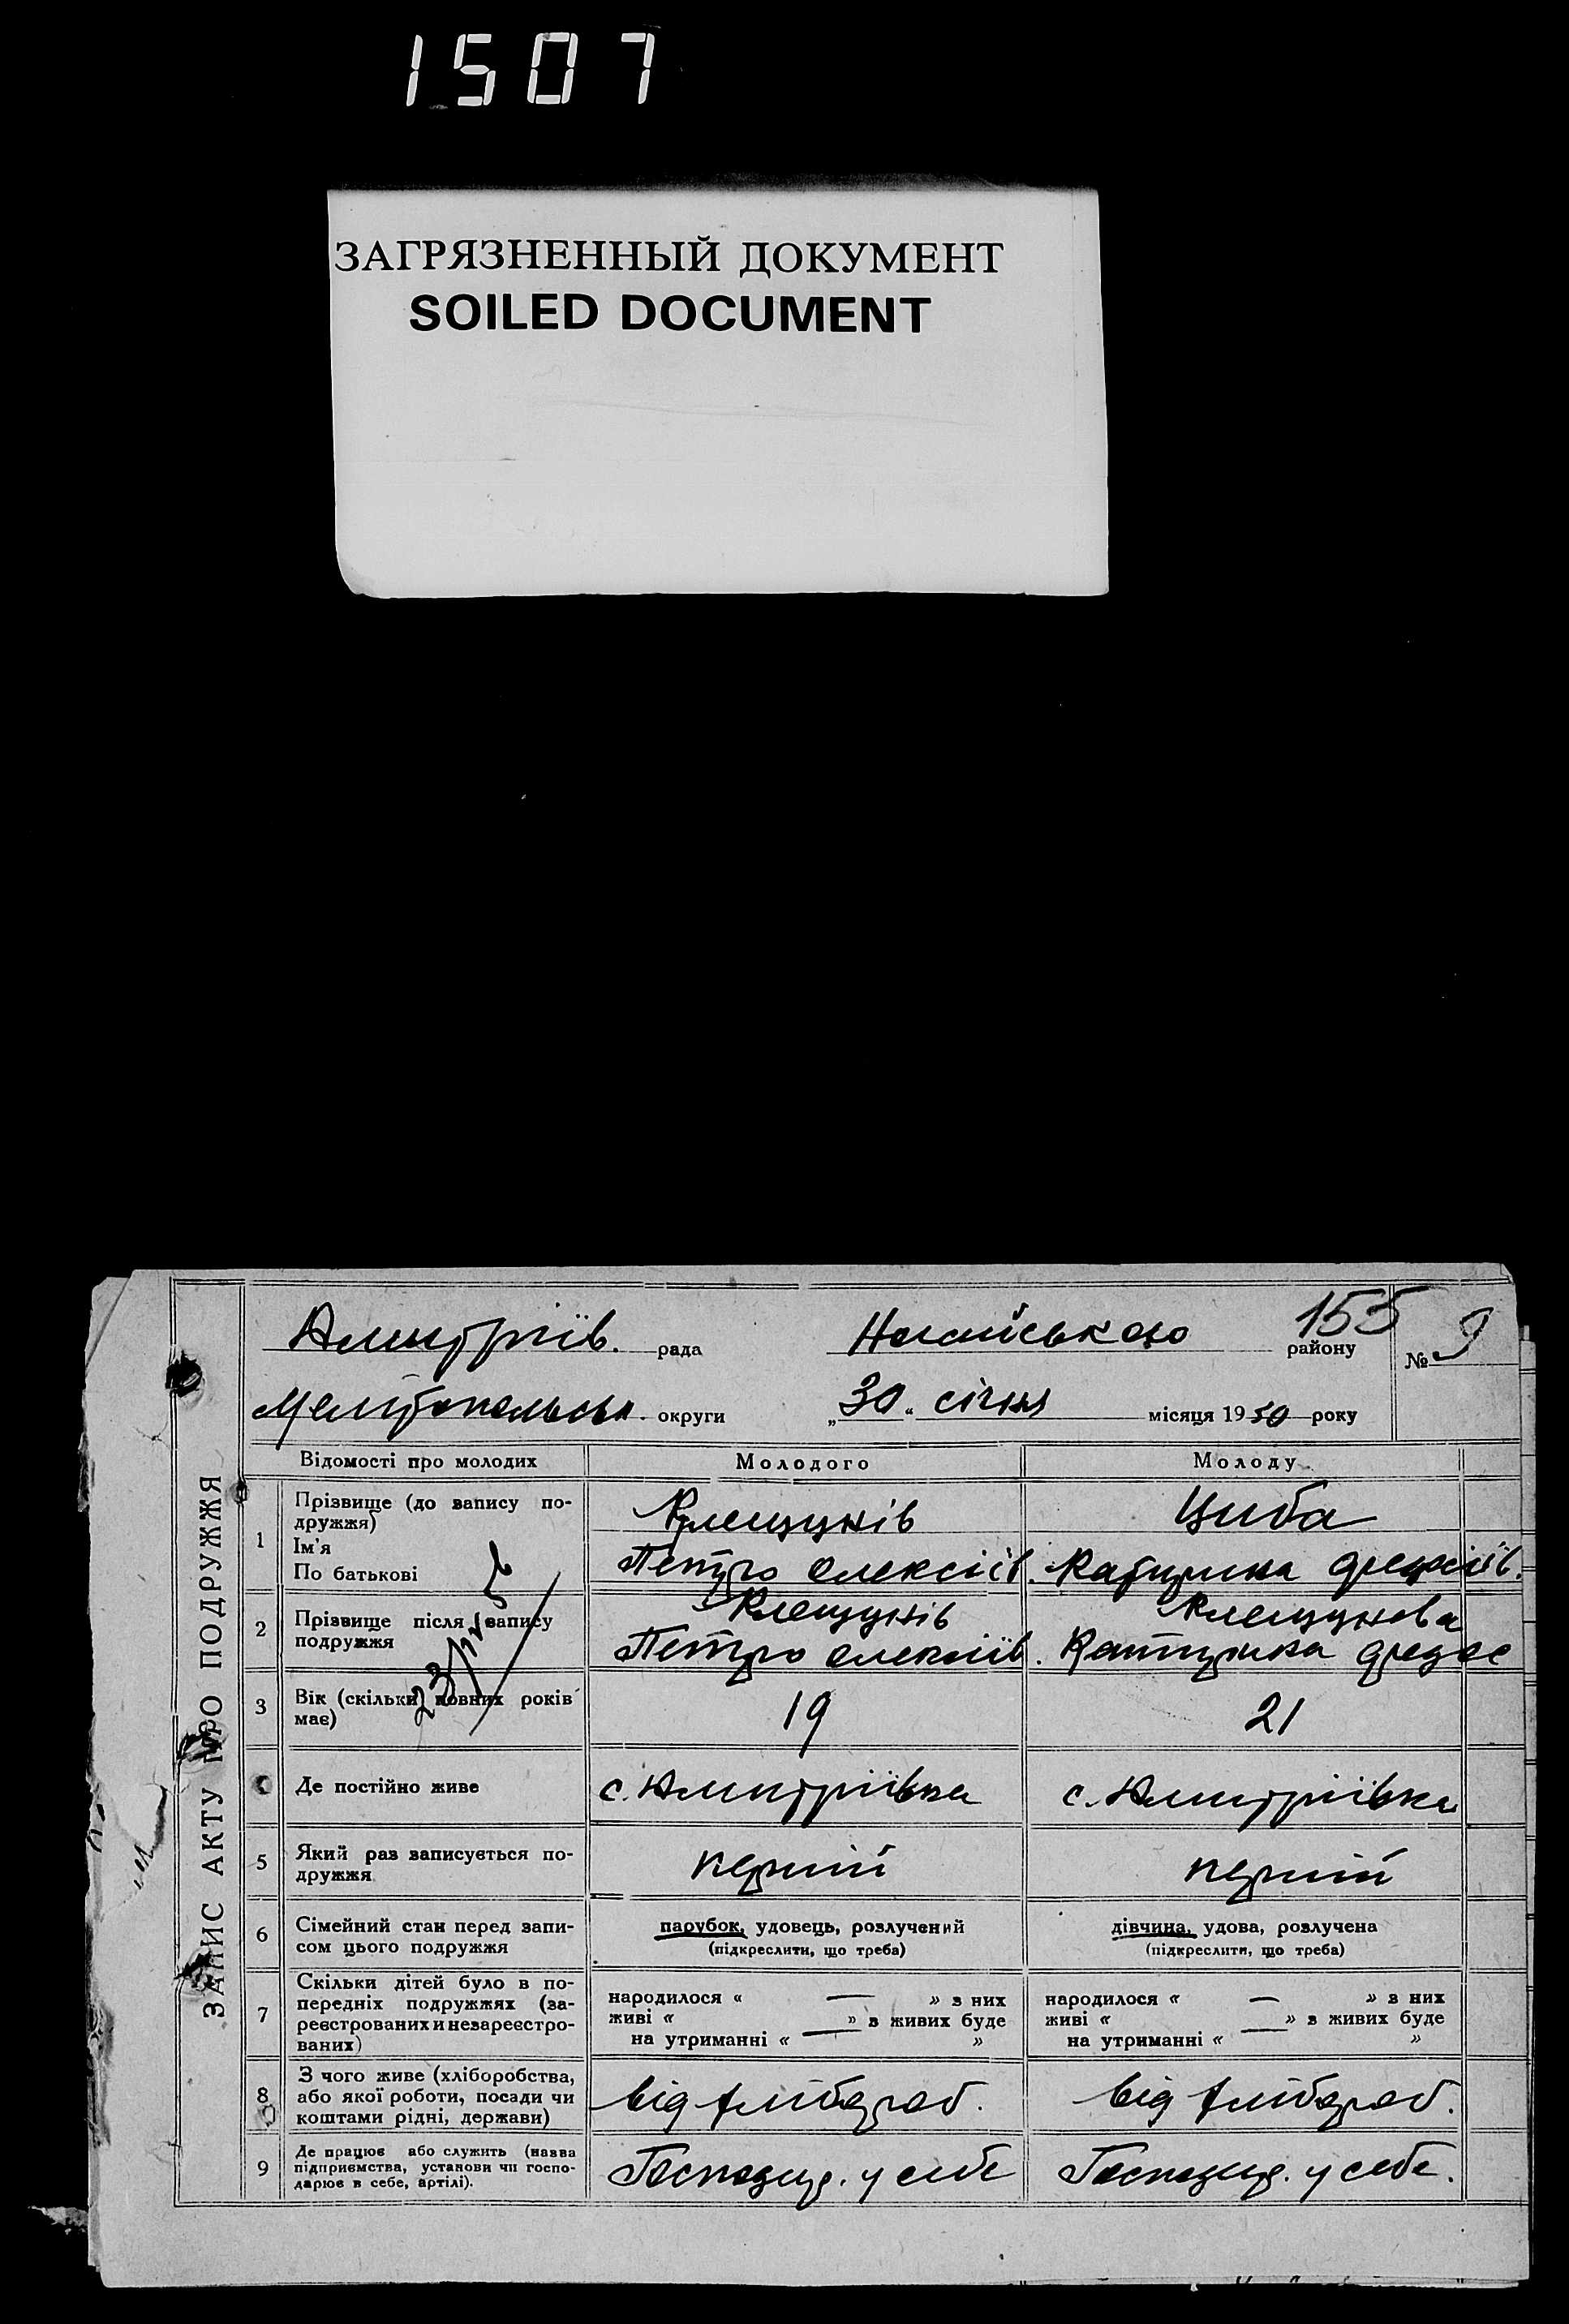 1507
ЗАГРЯЗНЕННЫЙ ДОКУМЕНТ
SOILED DOCUMENT
155
Дмитріїв. рада Ногайського району № 9
Мелітопольськ. округи „30“ січня місяця 1930 року
ЗАПИС АКТУ ПРО ПОДРУЖЖЯ
Відомості про молодих Молодого Молоду
1 Прізвище (до запису подружжя) Клещунів Циба
Ім'я
По батькові Петро Олексіїв. Катирина
2 Прізвище після запису подружжя Клещунів Клещунова
Петро Олексіїв. Катирина
3 Вік (скільки повних років має) 19 21
Де постійно живе с. Дмитріївка с. Дмитріївка
5 Який раз записується подружжя перший перший
6 Сімейний стан перед записом цього подружжя парубок, удовець, розлучений дівчина, удова, розлучена
(підкреслити, що треба) (підкреслити, що треба)
7 Скільки дітей було в попередніх подружжях (зареєстрованих и незареєстрованих)
народилося « — » з них народилося « — » з них
живі « — » в живих буде живі « — » в живих буде
на утриманні « » на утриманні « »
8 З чого живе (хліборобства, або якої роботи, посади чи коштами рідні, держави) від хлібороб. від хлібороб.
9 Де працює або служить (назва підприємства, установи чи господарює в себе, артілі). Господар. у себе Господар. у себе.